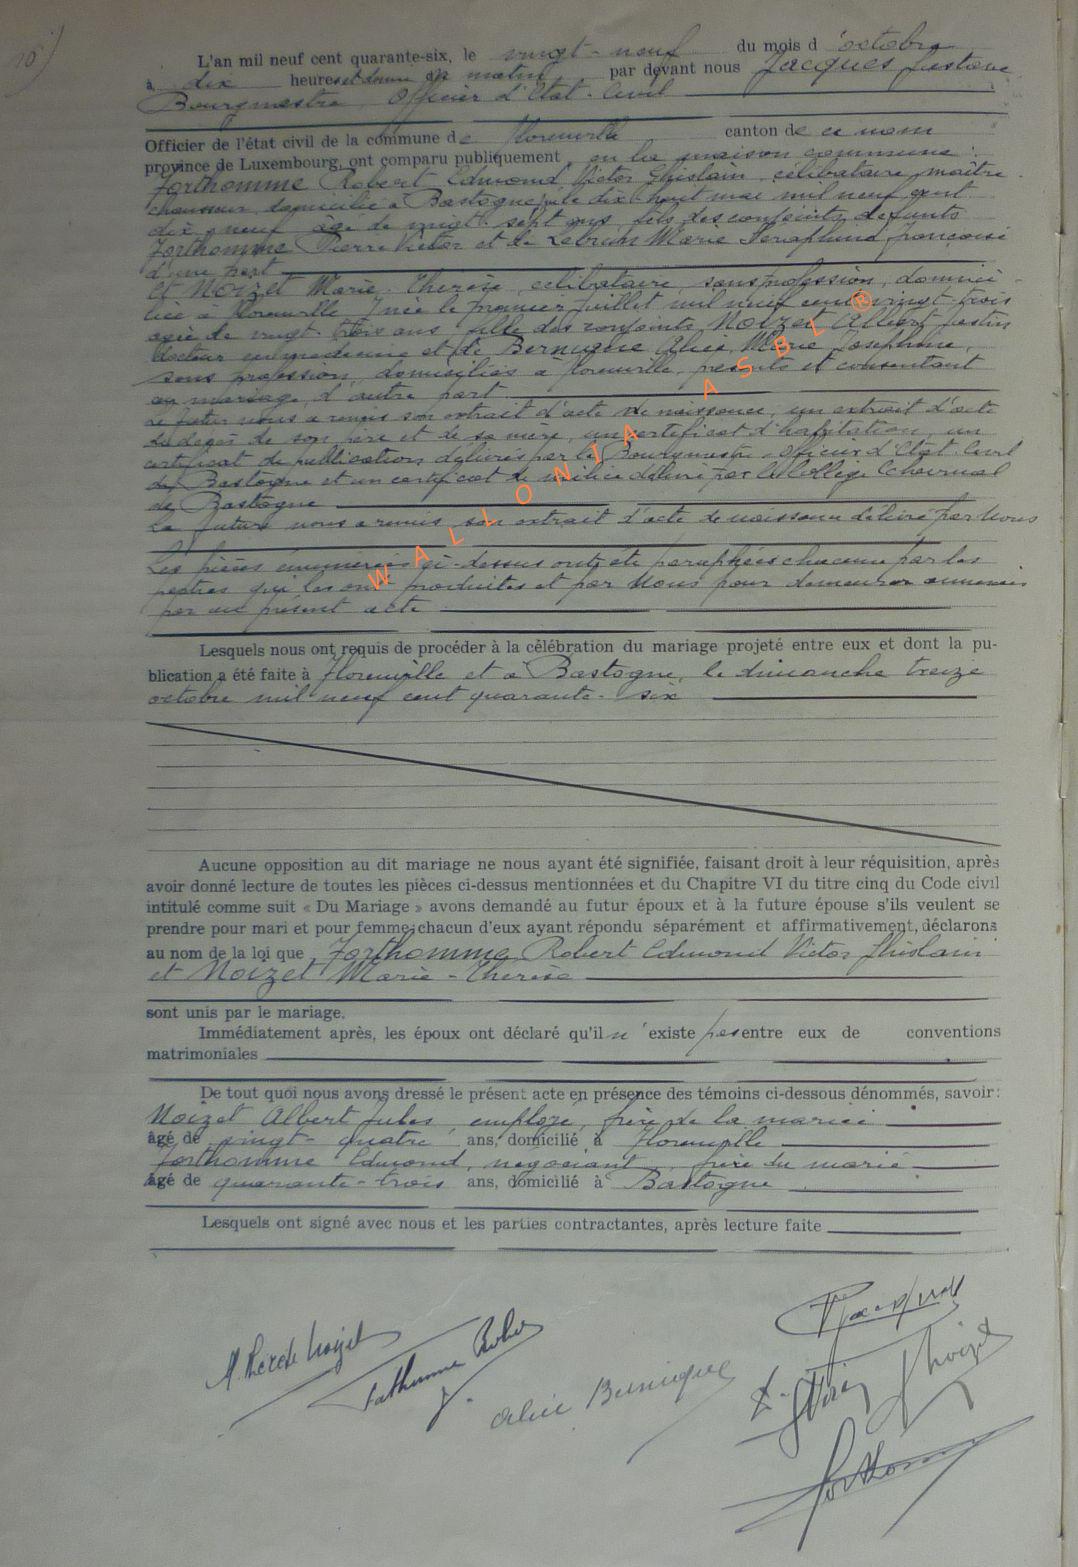 L'an mil neuf cent quarante-six, le vingt-neuf du mois d'octobre
à dix heures et demie du matin par devant nous Jacques Gustave
Bourgmestre Officier d'Etat-Civil
Officier de l'état civil de la commune de Florenville canton de ce nom
province de Luxembourg, ont comparu publiquement, en la maison commune:
Forthomme Robert Edmond Victor Ghislain, célibataire, maître
chausseur, domicilié à Bastogne, le dix-huit mai mil neuf cent
dix neuf âgé de vingt-sept ans, fils des conjoints défunts
Forthomme Pierre Victor et de Lebrun Marie Séraphine Françoise
d'une part
et Noizet Marie-Thérèse, célibataire, sans profession, domici-
liée à Florenville, née le premier juillet mil neuf cent vingt trois
agée de vingt-trois ans, fille des conjoints, Noizet Albert Justin
docteur en médecine et de Bernugne Alice Marie Joséphine,
sans profession, domiciliés à Florenville, présents et consentant
au mariage, d'autre part
Le futur nous a remis son extrait d'acte de naissance, un extrait d'acte
de décès de son père et de sa mère, un certificat d'habitation, un
certificat de publication délivrés par le Bourgmestre-Officier d'Etat-Civil
de Bastogne et un certificat de milice délivré par le Collège Echevinal
de Bastogne
La future nous a remis son extrait d'acte de naissance délivré par Nous
Les pièces énumérées ci-dessus ont été paraphées chacune par les
parties qui les ont produites et par Nous pour demeurer annexées
par au présent acte
Lesquels nous ont requis de procéder à la célébration du mariage projeté entre eux et dont la pu-
blication a été faite à Florenville et à Bastogne, le dimanche treize
octobre mil neuf cent quarante-six
Aucune opposition au dit mariage ne nous ayant été signifiée, faisant droit à leur réquisition, après
avoir donné lecture de toutes les pièces ci-dessus mentionnées et du Chapitre VI du titre cinq du Code civil
intitulé comme suit « Du Mariage » avons demandé au futur époux et à la future épouse s'ils veulent se
prendre pour mari et pour femme; chacun d'eux ayant répondu séparément et affirmativement, déclarons
au nom de la loi que Forthomme Robert Edmond Victor Ghislain
et Noizet Marie-Thérèse
sont unis par le mariage.
Immédiatement après, les époux ont déclaré qu'il n'existe pas entre eux de conventions
matrimoniales
De tout quoi nous avons dressé le présent acte en présence des témoins ci-dessous dénommés, savoir:
Noizet Albert Jules, employé, frère de la mariée
âgé de vingt-quatre ans, domicilié à Florenville
Forthomme Edmond, négociant, frère du marié
âgé de quarante-trois ans, domicilié à Bastogne
Lesquels ont signé avec nous et les parties contractantes, après lecture faite
WALLONIA ASBL ®
M. Thérèse Noizet
Forthomme Robert
Alice Bernugne
Noizet
Forthomme